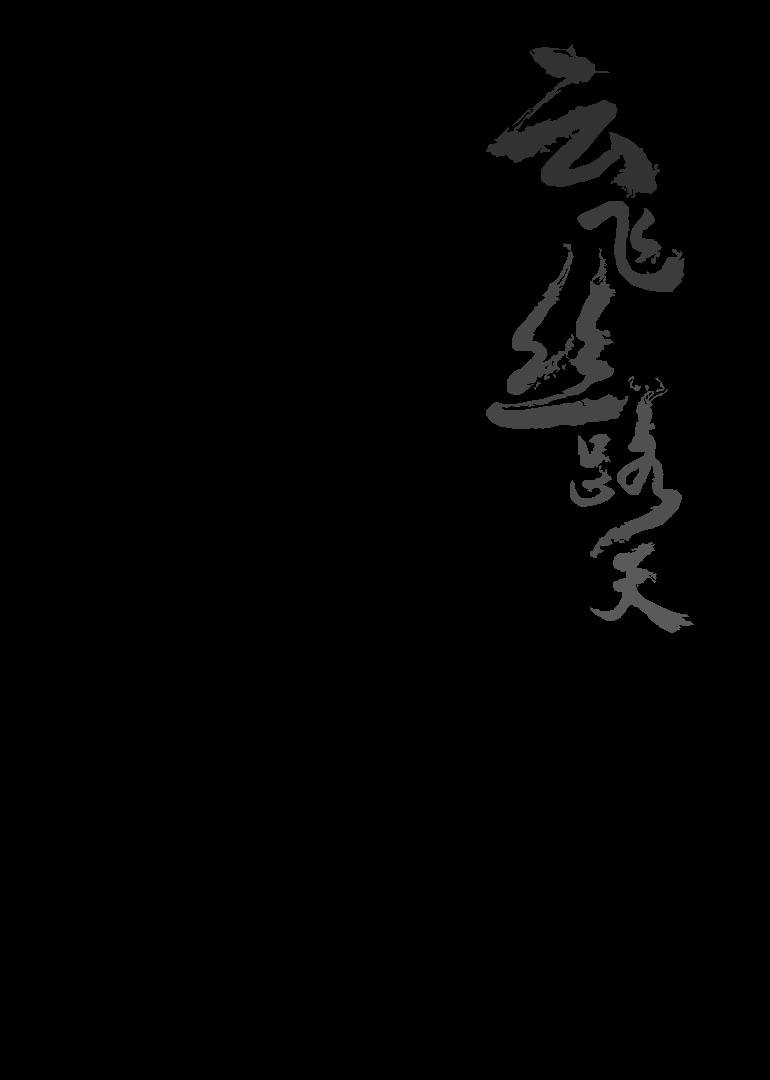 云飞丝路天